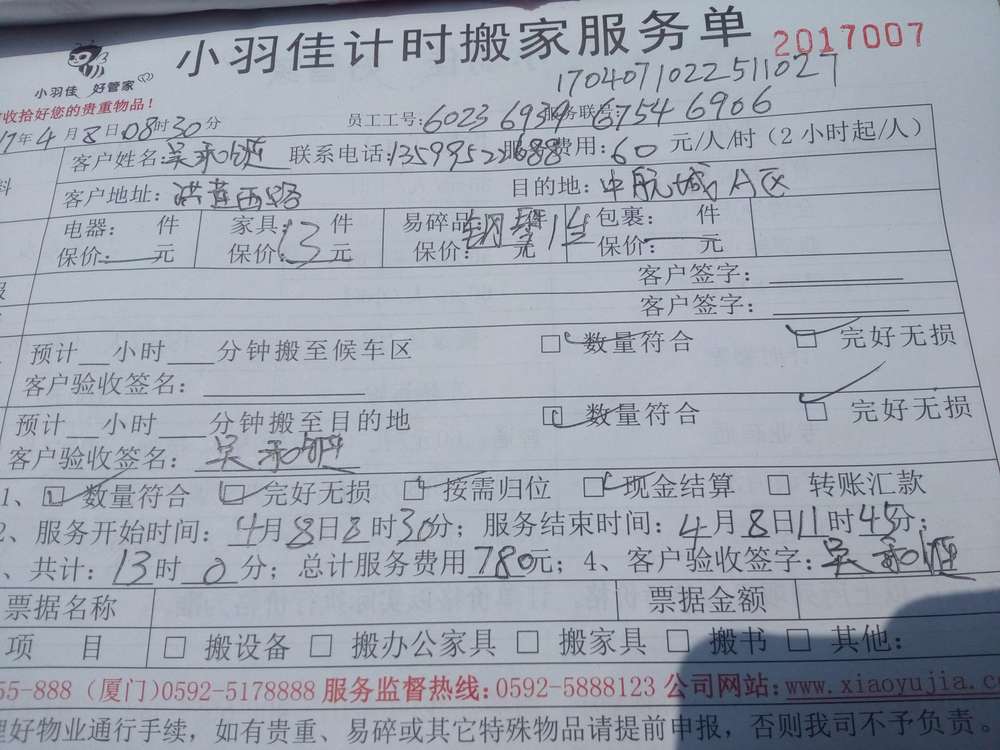 小羽佳计时搬家服务单
2017007
小羽佳 好管家
1704071022511027
收拾好您的贵重物品！
17年4月8日08时30分 员工工号:6023 6939 服务联号:6754 6906
客户姓名: 联系电话: 服务费用:60元/人/时（2小时起/人）
客户地址: 洪莲西路 目的地: 中航城A区
电器： 件 家具:13件 易碎品:钢琴1台 包裹： 件
保价: 元 保价: 元 保价: 元 保价: 元
客户签字：
客户签字：
预计 小时 分钟搬至候车区 □ 数量符合 □ 完好无损
客户验收签名：
预计 小时 分钟搬至目的地 □ 数量符合 □ 完好无损
客户验收签名：
1、□ 数量符合 □ 完好无损 □ 按需归位 □ 现金结算 □ 转账汇款
2、服务开始时间：4月8日8时30分；服务结束时间：4月8日11时45分；
、共计：13时0分；总计服务费用780元；4、客户验收签字：
票据名称 票据金额
项 目 □ 搬设备 □ 搬办公家具 □ 搬家具 □ 搬书 □ 其他：
55-888（厦门)0592-5178888 服务监督热线：0592-5888123 公司网站：www.xiaoyujia.co
理好物业通行手续，如有贵重、易碎或其它特殊物品请提前申报，否则我司不予负责。